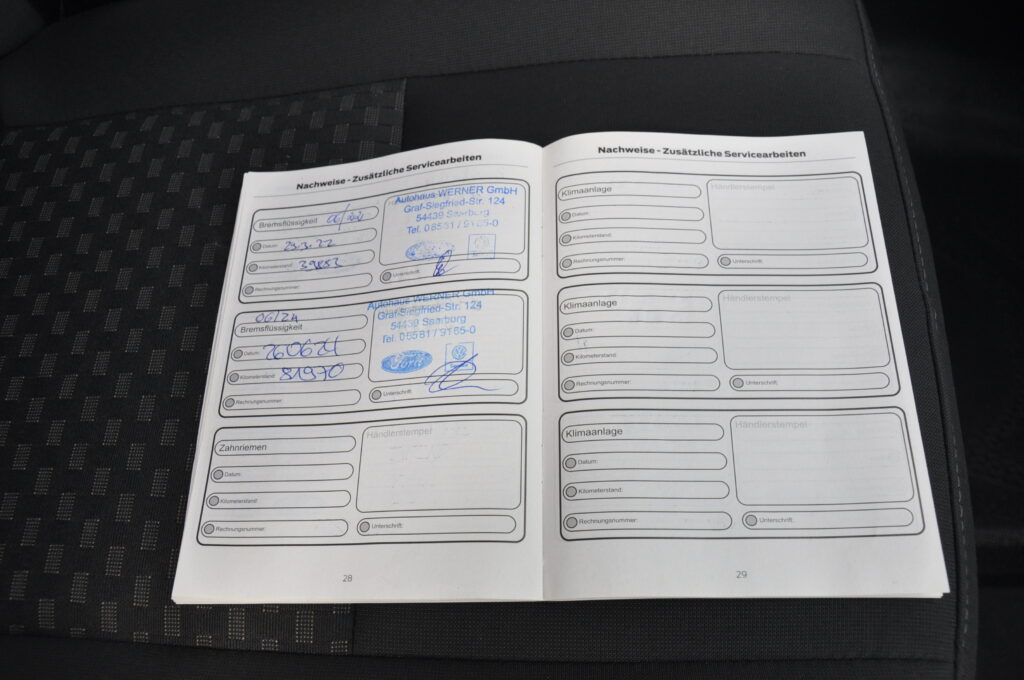 Nachweise - Zusätzliche Servicearbeiten
Bremsflüssigkeit
Datum: 23.3.22
Kilometerstand:
Rechnungsnummer:
Autohaus WERNER GmbH
Graf-Siegfried-Str. 124
54439 Saarburg
Unterschrift:
06/24
Bremsflüssigkeit
Datum: 260624
Kilometerstand: 81970
Rechnungsnummer:
Autohaus WERNER GmbH
Graf-Siegfried-Str. 124
54439 Saarburg
Tel. 06581 / 9165-0
Ford
Unterschrift:
Zahnriemen
Datum:
Kilometerstand:
Rechnungsnummer:
Händlerstempel
Unterschrift:
28
Nachweise - Zusätzliche Servicearbeiten
Klimaanlage
Datum:
Kilometerstand:
Rechnungsnummer:
Händlerstempel
Unterschrift:
Klimaanlage
Datum:
Kilometerstand:
Rechnungsnummer:
Händlerstempel
Unterschrift:
Klimaanlage
Datum:
Kilometerstand:
Rechnungsnummer:
Händlerstempel
Unterschrift:
29